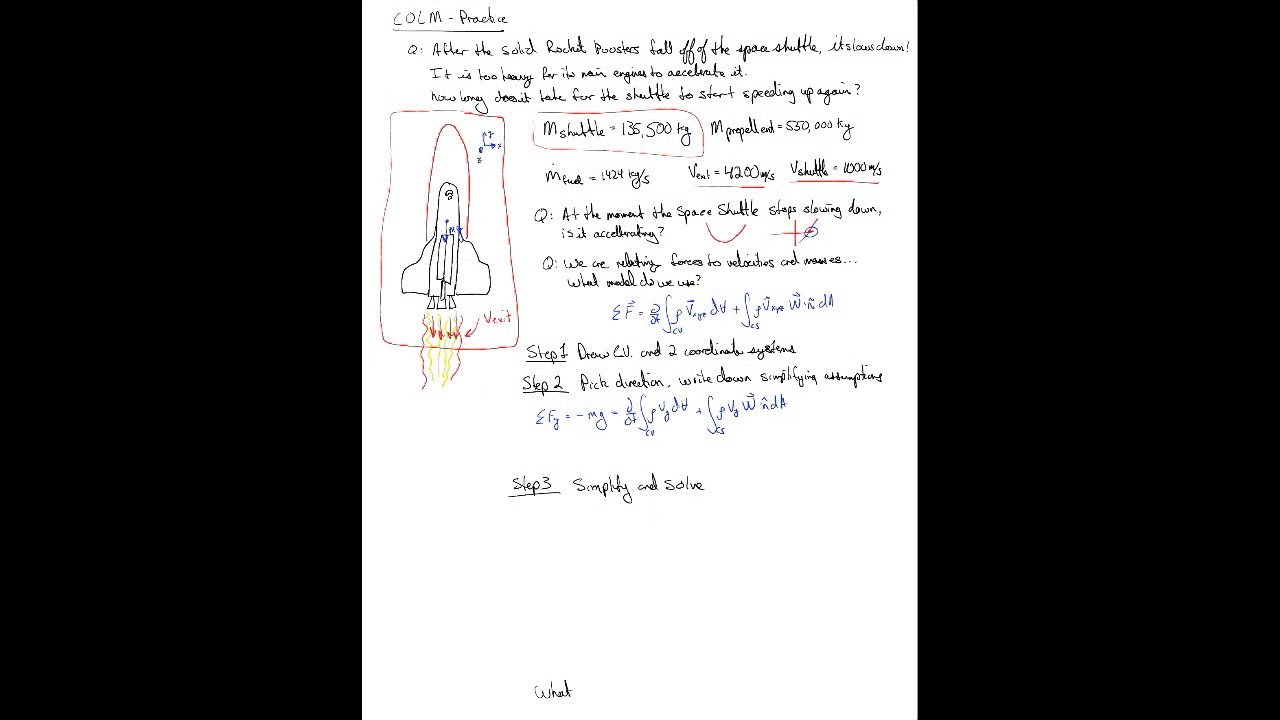 COLM - Practice
Q: After the Solid Rocket Boosters fall off of the space shuttle, it slows down!
It is too heavy for its main engines to accelerate it.
How long does it take for the shuttle to start speeding up again?
M shuttle = 135,500 kg M propellent = 550,000 kg
ṁ fuel = 1424 kg/s V exit = 4200 m/s V shuttle = 1000 m/s
Q: At the moment the Space Shuttle stops slowing down,
is it accelerating?
Q: We are relating forces to velocities and masses...
What model do we use?
ΣF⃗ = ∂/∂t ∫cv ρ V⃗xyz dV + ∫cs ρ V⃗xyz W⃗·n̂ dA
Vexit
Step 1 Draw C.V. and 2 coordinate systems
Step 2 Pick direction, write down simplifying assumptions
ΣFy = -mg = ∂/∂t ∫cv ρ Vy dV + ∫cs ρ Vy W⃗·n̂ dA
Step 3 Simplify and Solve
What